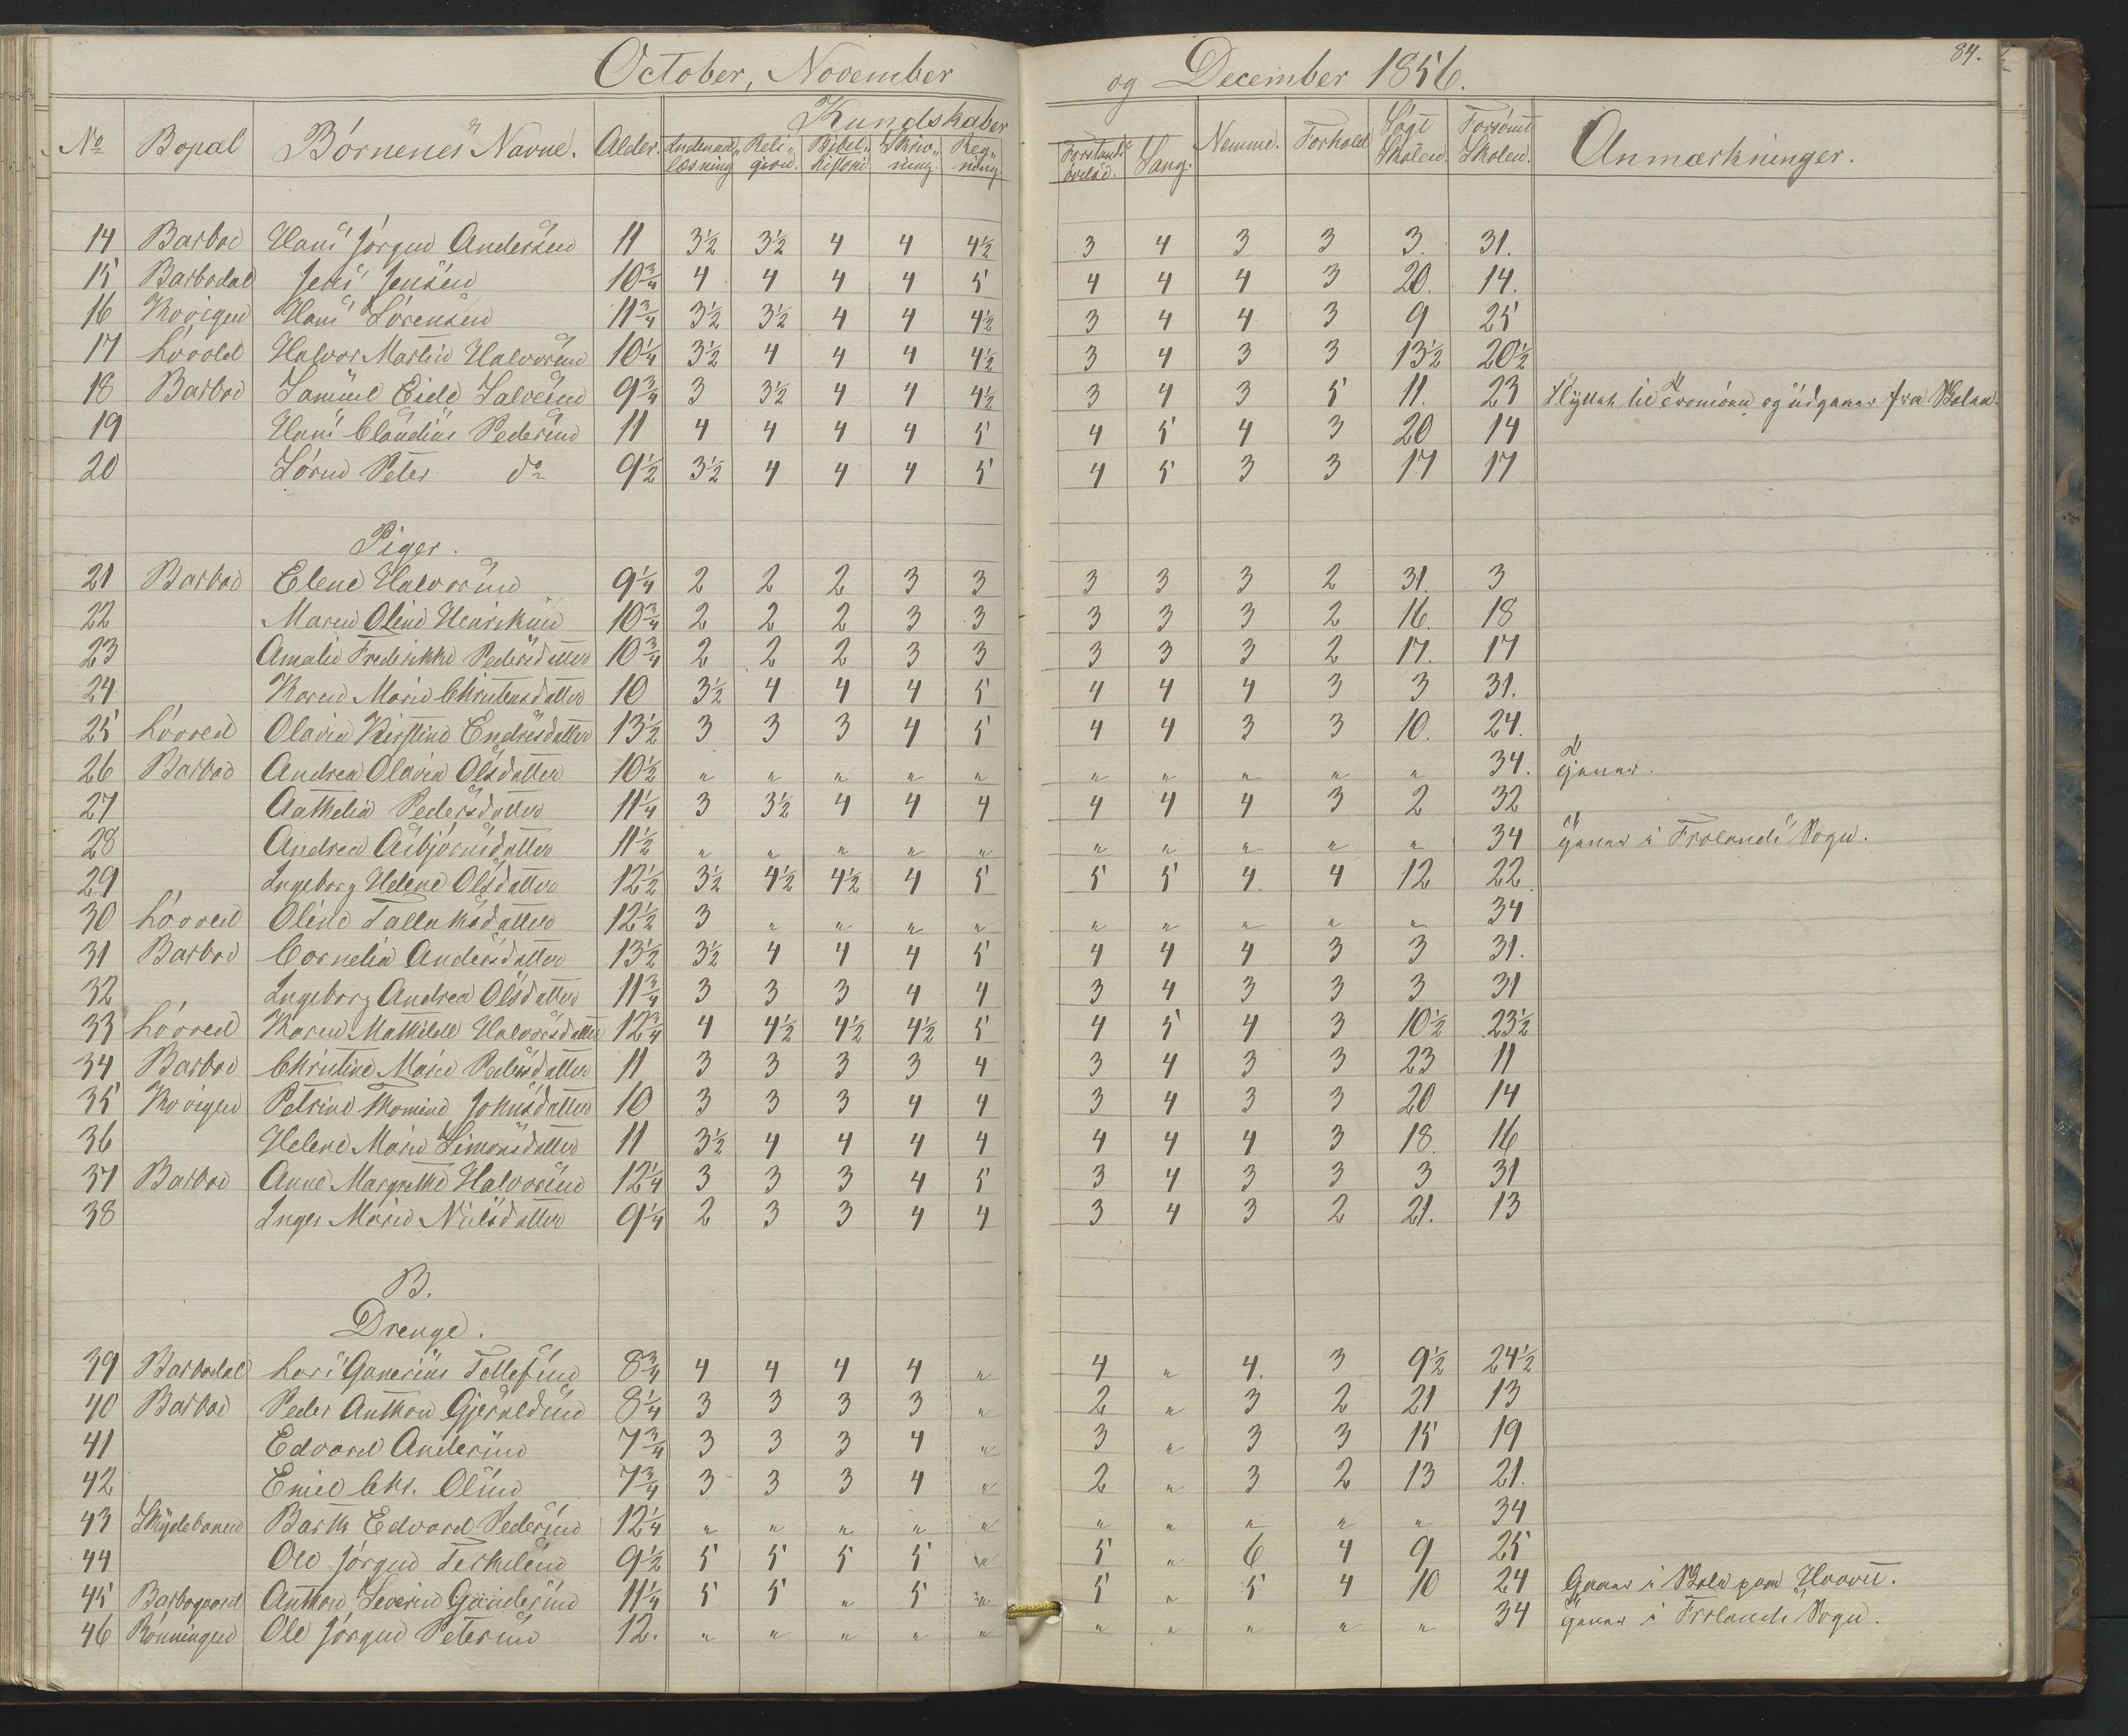 October, November og December 1856. 84.
No Bopal Börnenes Navne. Alder. Kundskaber Nemme. Forhold Sögt Skolen. Forsömt Skolen. Anmærkninger.
Indenadlæsning Religion. Bibelhistorie Skrivning. Regning Forstandsövelse. Sang.
14 Barboe Hans Jörgen Andersen 11 3½ 3½ 4 4 4½ 3 4 3 3 3. 31.
15 Barbodal Jens Jensen 10¾ 4 4 4 4 5 4 4 4 3 20. 14.
16 Kovigen Hans Sörensen 11¾ 3½ 3½ 4 4 4½ 3 4 4 3 9 25
17 Lövold Halvor Martin Halvorsen 10¼ 3½ 4 4 4 4½ 3 4 3 3 13½ 20½
18 Barboe Samuel Eide Salvesen 9¾ 3 3½ 4 4 4½ 3 4 3 5 11. 23 Flyttet til Tromöen og udgaaer fra Skolen.
19 Hans Claudius Pedersen 11 4 4 4 4 5 4 5 4 3 20 14
20 Sören Peter do 9½ 3½ 4 4 4 5 4 5 3 3 17 17
Piger.
21 Barboe Elene Halvorsen 9¼ 2 2 2 3 3 3 3 3 2 31. 3
22 Maren Oline Henriksen 10¾ 2 2 2 3 3 3 3 3 2 16. 18
23 Amalie Frederikke Pedersdatter 10¾ 2 2 2 3 3 3 3 3 2 17. 17
24 Karen Marie Christensdatter 10 3½ 4 4 4 5 4 4 4 3 3 31.
25 Lövved Olavia Kirstine Endresdatter 13½ 3 3 3 4 5 4 4 3 3 10. 24.
26 Barboe Andrea Olavia Olsdatter 10½ " " " " " " " " " " 34. Tjener.
27 Aathelia Pedersdatter 11¼ 3 3½ 4 4 4 4 4 4 3 2 32
28 Andrea Asbjörnsdatter 11½ " " " " " " " " " " 34 Tjener i Frolands Sogn.
29 Ingeborg Helene Olsdatter 12½ 3½ 4½ 4½ 4 5 5 5 4 4 12 22
30 Lövved Oline Tallaksdatter 12½ 3 " " " " " " " " " 34
31 Barboe Cornelia Andersdatter 13½ 3½ 4 4 4 5 4 4 4 3 3 31.
32 Ingeborg Andrea Olsdatter 11¾ 3 3 3 4 4 3 4 3 3 3 31
33 Lövved Karen Mathilde Halvorsdatter 12¾ 4 4½ 4½ 4½ 5 4 5 4 3 10½ 23½
34 Barboe Christine Marie Pedersdatter 11 3 3 3 3 4 3 4 3 3 23 11
35 Kovigen Petrine Thomine Johnsdatter 10 3 3 3 4 4 3 4 3 3 20 14
36 Helene Marie Simonsdatter 11 3½ 4 4 4 4 4 4 4 3 18. 16
37 Barboe Anne Margrethe Halvorsen 12¼ 3 3 3 4 5 3 4 3 3 3 31
38 Inger Marie Nielsdatter 9¼ 2 3 3 4 4 3 4 3 2 21. 13
B.
Drenge.
39 Barbodal Lars Ganerius Tellefsen 8¾ 4 4 4 4 " 4 " 4. 3 9½ 24½
40 Barboe Peder Anthon Gjeruldsen 8¼ 3 3 3 3 " 2 " 3 2 21 13
41 Edvard Andersen 7¾ 3 3 3 4 " 3 " 3 3 15 19
42 Emil Chr. Olsen 7¾ 3 3 3 4 " 2 " 3 2 13 21.
43 Skydebanen Barth Edvard Pedersen 12¼ " " " " " " " " " " 34
44 Ole Jörgen Terkelsen 9½ 5 5 5 5 " 5 " 6 4 9 25
45 Barbogaard Anthon Severin Gundersen 11¼ 5 5 " 5 " 5 " 5 4 10 24 Gaaer i Skole paa
46 Rönningen Ole Jörgen Petersen 12. " " " " " " " " " " 34 Tjener i Frolands Sogn.